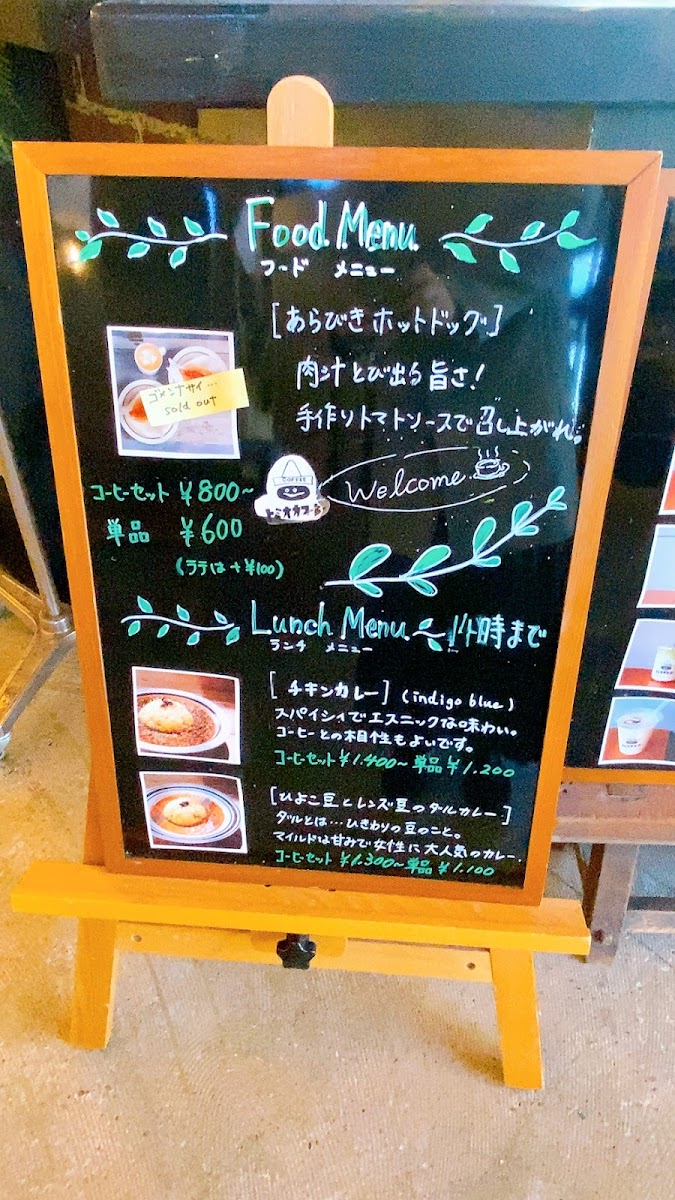 Food Menu
フード メニュー
[あらびきホットドッグ]
肉汁とび出る旨さ!
手作りトマトソースで召し上がれ。
ゴメンナサイ...
sold out
コーヒーセット ¥800~
単品 ¥600
(ラテは+¥100)
COFFEE
トミオカコーヒー
Welcome
Lunch Menu ~14時まで
ランチ メニュー
[チキンカレー] (indigo blue)
スパイシィでエスニックな味わい。
コーヒーとの相性もよいです。
コーヒーセット ¥1.400~ 単品 ¥1.200
[ひよこ豆とレンズ豆のダールカレー]
ダルとは...ひきわりの豆のこと。
マイルドな甘みで女性に大人気のカレー.
コーヒーセット ¥1.300~ 単品 ¥1.100